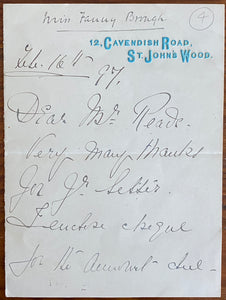 Miss Fanny Brough
4
12, CAVENDISH ROAD,
ST. JOHN'S WOOD.
Feb. 16th
97.
Dear Mr. Reade.
Very many thanks
for yr. letter.
I enclose cheque
for the amount due -